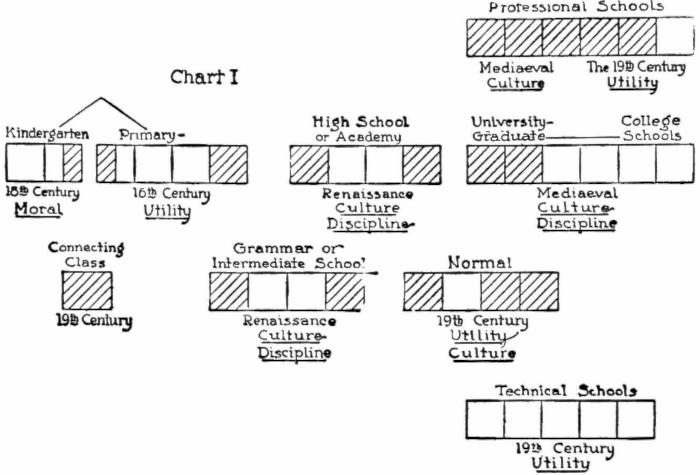 Professional Schools
Mediaeval
Culture
The 19th Century
Utility
Chart I
Kindergarten
18th Century
Moral
Primary-
16th Century
Utility
High School
or Academy
Renaissance
Culture
Discipline
University-
Graduate
College
Schools
Mediaeval
Culture
Discipline
Connecting
Class
19th Century
Grammar or
Intermediate School
Renaissance
Culture
Discipline
Normal
19th Century
Utility
Culture
Technical Schools
19th Century
Utility